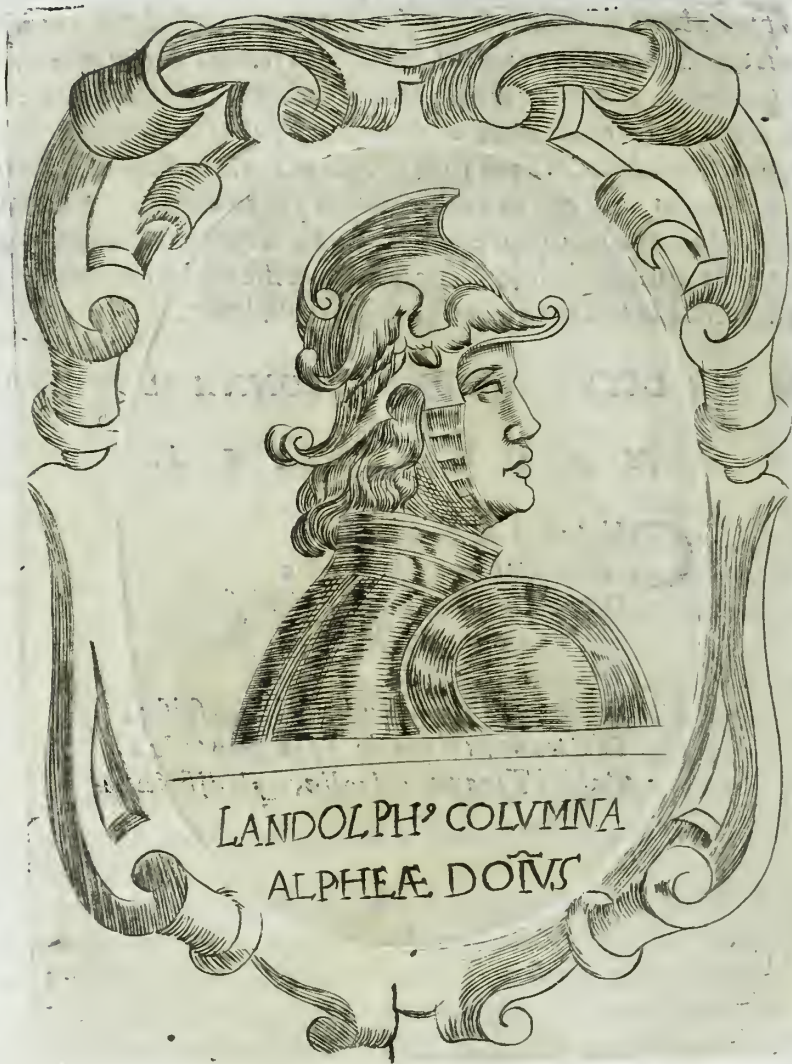 LANDOLPHꝰ COLVMNA
ALPHEÆ DOÑIVS